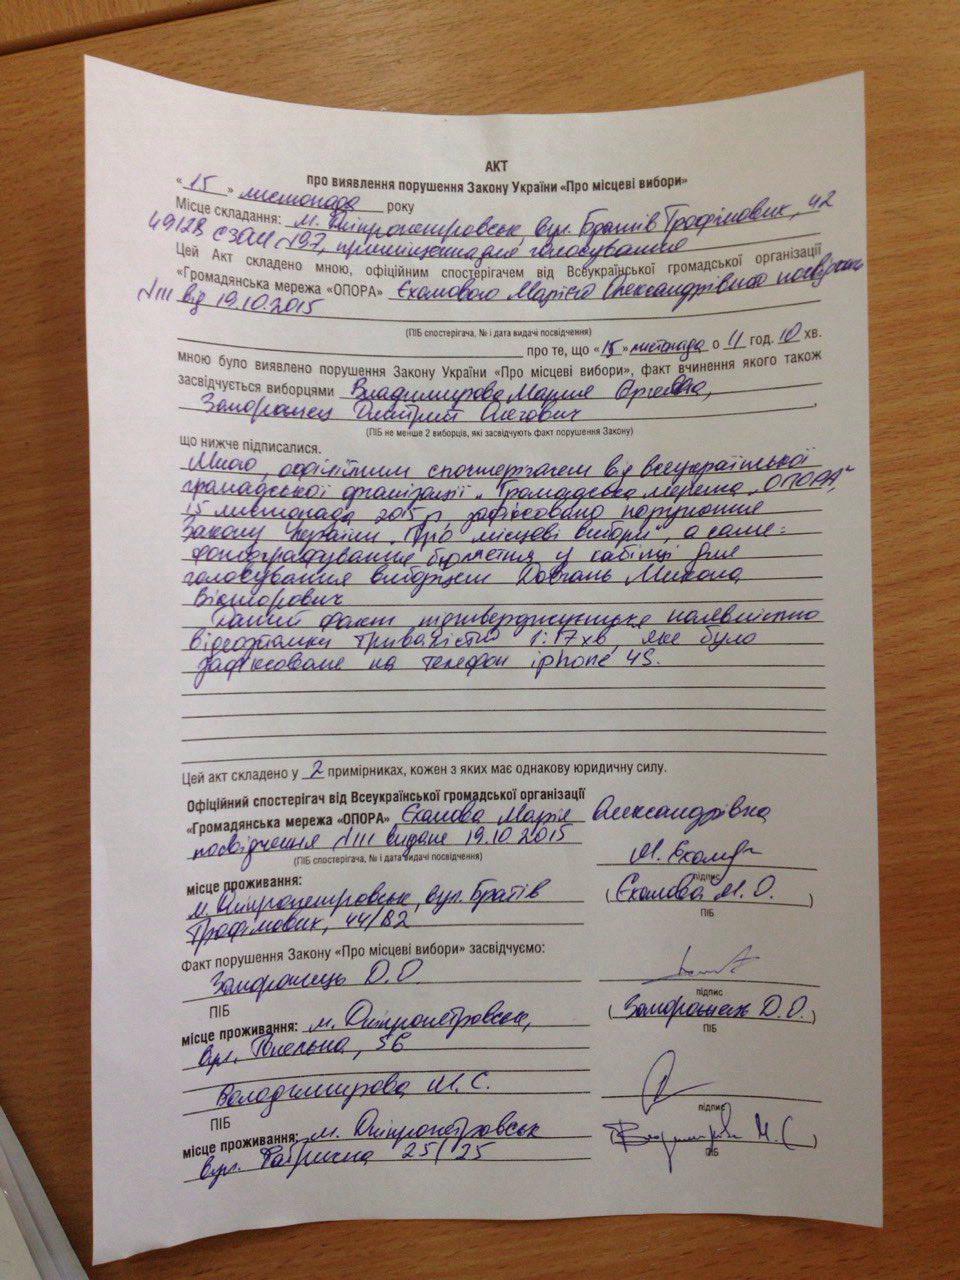 АКТ
про виявлення порушення Закону України «Про місцеві вибори»
« 15 » листопада року
Місце складання: м. Дніпропетровськ, вул. Братів Трофімових, 42
49128 СЗОШ №97, приміщення для голосування
Цей Акт складено мною, офіційним спостерігачем від Всеукраїнської громадської організації
«Громадянська мережа «ОПОРА» Єхамовою Марією Олександрівною посвідчення
№111 від 19.10.2015
(ПІБ спостерігача, № і дата видачі посвідчення)
про те, що «15» листопада о 11 год. 10 хв.
мною було виявлено порушення Закону України «Про місцеві вибори», факт вчинення якого також
засвідчується виборцями Владимирова Мария,
Запорожец Дмитрий Олегович
(ПІБ не менше 2 виборців, які засвідчують факт порушення Закону)
що нижче підписалися.
Мною, офіційним спостерігачем від всеукраїнської
громадської організації „Громадська мережа „ОПОРА",
15 листопада 2015 р. зафіксовано порушення
Закону України „Про місцеві вибори", а саме:
фотографування бюлетня у кабінці для
голосування виборцем Микола
Вікторович
Даний факт підтверджується наявністю
відеозйомки тривалістю 1:17 хв, яке було
зафіксоване на телефон iphone 4S.
Цей акт складено у 2 примірниках, кожен з яких має однакову юридичну силу.
Офіційний спостерігач від Всеукраїнської громадської організації
«Громадянська мережа «ОПОРА» Єхамова Марія Олександрівна
посвідчення №111 видане 19.10.2015
(ПІБ спостерігача, № і дата видачі посвідчення)
підпис
місце проживання:
(Єхамова М. О.)
ПІБ
м. Дніпропетровськ, вул. Братів
Трофімових, 44/82
Факт порушення Закону «Про місцеві вибори» засвідчуємо:
Запорожець Д.О.
ПІБ
підпис
(Запорожець Д.О.)
ПІБ
місце проживання: м. Дніпропетровськ,
вул. 56
Володимирова М. С.
ПІБ
підпис
місце проживання: м. Дніпропетровськ
(Владимирова М. С)
ПІБ
вул. Фабрична 25/25